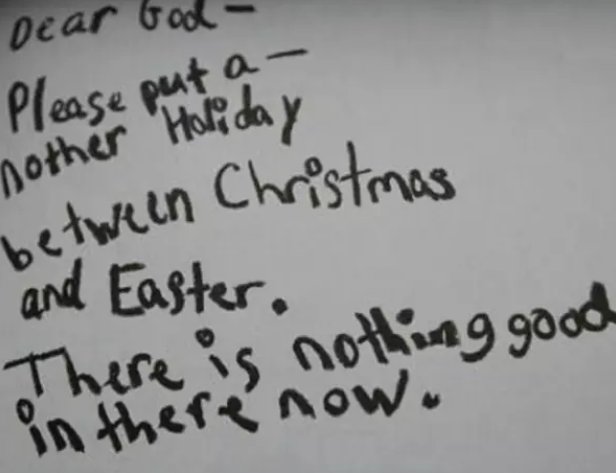 Dear God-
Please put a-
nother Holiday
between Christmas
and Easter.
There is nothing good
in there now.